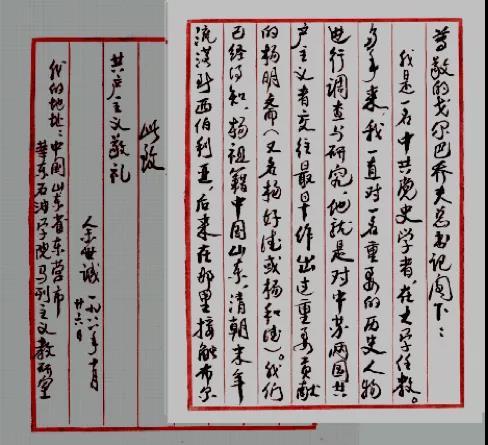 尊敬的戈尔巴乔夫总书记阁下：
我是一名中共党史学者，在大学任教。
多年来，我一直对一名重要的历史人物
进行调查与研究，他就是对中苏两国共
产主义者交往最早作出过重要贡献
的杨明斋（又名杨好德或杨和德）。我们
已经得知，杨祖籍中国山东，清朝末年
流落到西伯利亚，后来在那里接触布尔
此致
共产主义敬礼
余世诚
廿六日
我的地址：中国山东省东营市
华东石油学院马列主义教研室